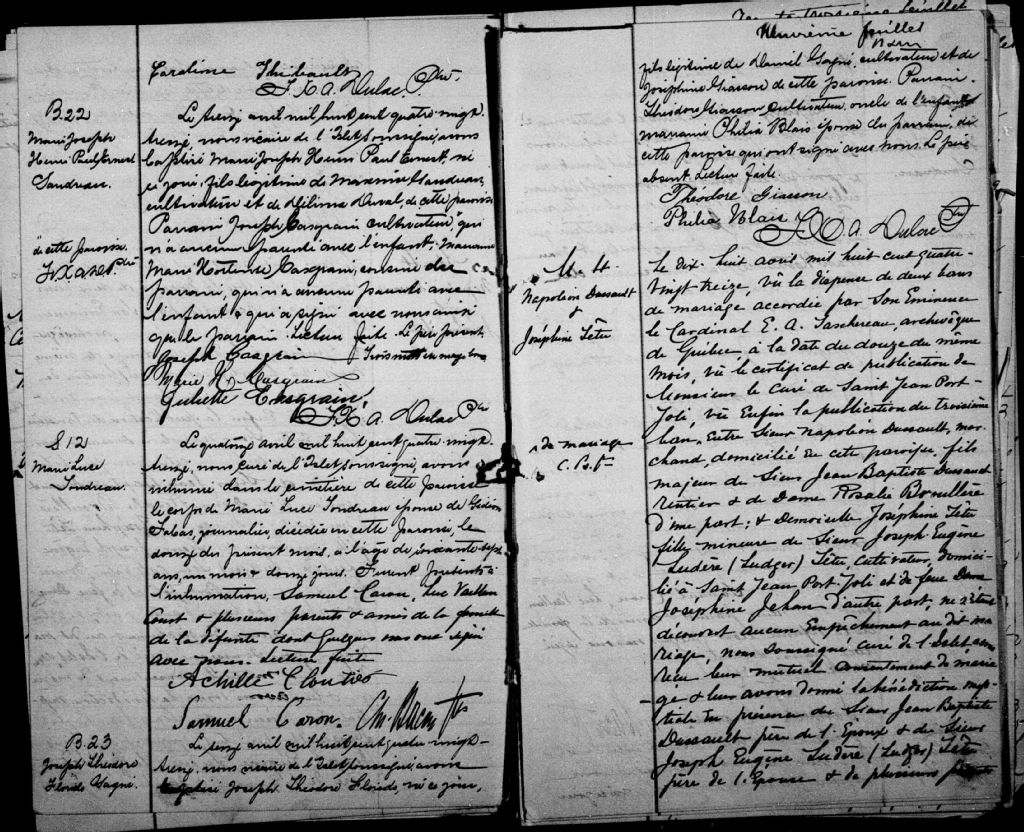 Caroline Thibault
F. X. A. Dulac Ptre.
B. 22
Marie Joseph
Henri Paul Ernest
Gaudreau.
Le treize avril mil huit cent quatre-vingt-
treize, nous vicaire de l'Islet soussigné, avons
baptisé Marie Joseph Henri Paul Ernest, né
ce jour, fils légitime de Maxime Gaudreau,
cultivateur et de Délima Duval, de cette paroisse.
Parrain Joseph Casgrain cultivateur, qui
n'a aucune parenté avec l'enfant; marraine
Marie Hortense Casgrain, cousine du
parrain, qui n'a aucune parenté avec
l'enfant & qui a signé avec nous ainsi
que le parrain. Lecture faite. Le père présent.
de cette paroisse.
F. X. A. D. Ptre
Joseph Casgrain
Marie H. Casgrain
Juliette Casgrain,
F. X. A. Dulac Ptre
S 12
Marie Luce
Le quatorze avril mil huit cent quatre-vingt-
treize, nous curé de l'Islet soussigné, avons
inhumé dans le cimetière de cette paroisse
le corps de Marie Luce épouse de Gédéon
journalier, décédée en cette paroisse, le
douze du présent mois, à l'âge de soixante-sept
ans, un mois & douze jours. Furent présents à
l'inhumation, Samuel Caron, Luc Vaillan
court & plusieurs parents & amis de la famille
de la défunte dont quelques uns ont signé
avec nous. Lecture faite
Achille Cloutier
Samuel Caron.
B. 23
Joseph Théodore
Gagné.
Le seize avril mil huit cent quatre-vingt-
treize, nous vicaire de l'Islet soussigné avons
baptisé Joseph Théodore né ce jour,
Neuvième feuillet
fils légitime de Daniel Gagné, cultivateur et de
Joséphine Giasson de cette paroisse. Parrain
Théodore Giasson cultivateur, oncle de l'enfant
marraine Philia Blais épouse du parrain, de
cette paroisse qui ont signé avec nous. Le père
absent. Lecture faite.
Théodore Giasson
Philia Blais
F. X. A. Dulac Ptre
M. 4.
Napoléon Dussault
&
Joséphine Têtu
Le dix-huit avril mil huit cent quatre-
vingt treize, vû la dispense de deux bans
de mariage accordée par Son Eminence
le Cardinal E. A. Taschereau, archevêque
de Québec, à la date du douze du même
mois, vû le certificat de publication de
Monsieur le Curé de Saint Jean Port-
Joli, vû enfin la publication du troisième
ban, entre Sieur Napoléon Dussault, mar-
chand, domicilié en cette paroisse, fils
majeur de Sieur Jean Baptiste Dussault
rentier & de Dame Rosalie
d'une part; & Demoiselle Joséphine Têtu
fille mineure de Sieur Joseph Eugène
Ludère (Ludger) Têtu, cultivateur, domici-
lié à Saint Jean Port-Joli et de feue Dame
Joséphine Jehan d'autre part, ne s'étant
découvert aucun empêchement au dit ma
riage, nous soussigné curé de l'Islet, avons
reçu leur mutuel consentement de maria
ge & leur avons donné la bénédiction nup-
tiale en présence de Sieur Jean Baptiste
Dussault père de l'Epoux & de Sieur
Joseph Eugène Ludère (Ludger) Têtu
père de l'Epouse & de plusieurs
de mariage